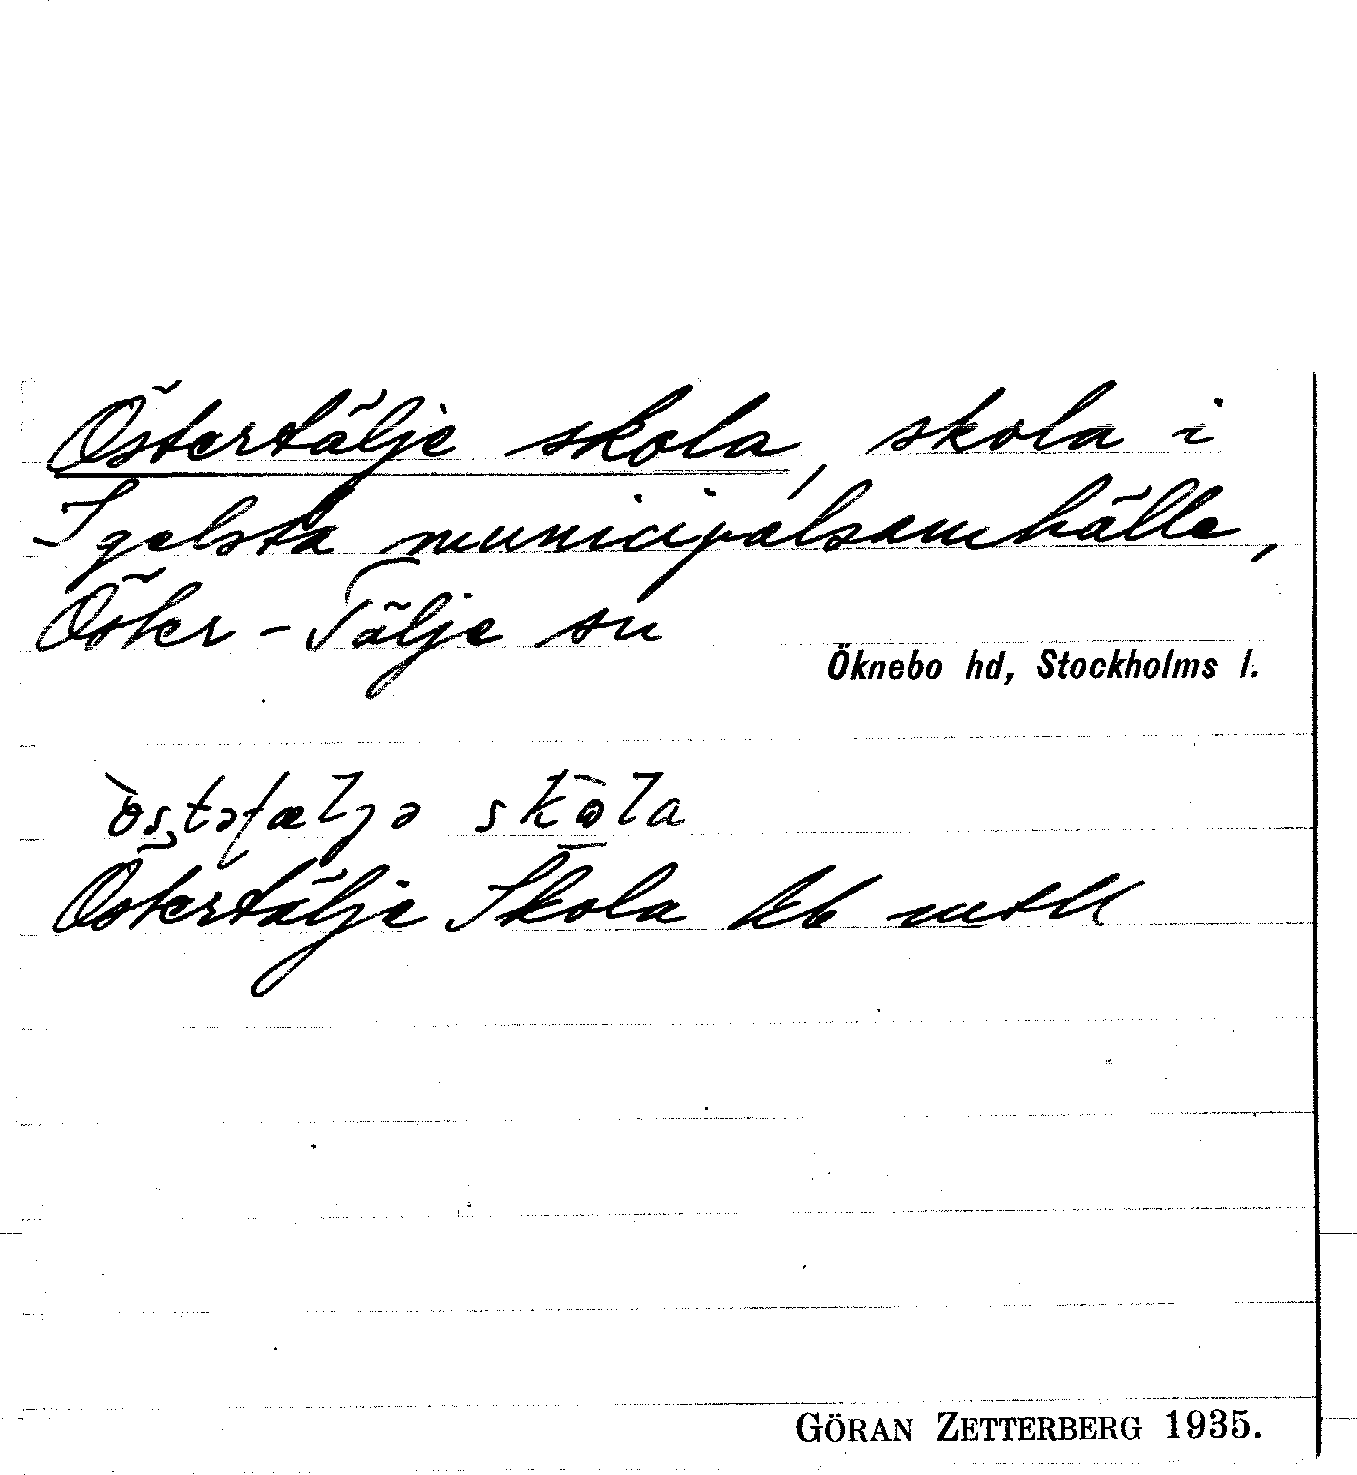 Östertälje skola, skola i
Igelsta municipalsamhälle,
Öster-Tälje sn
Öknebo hd, Stockholms l.
skola
Östertälje Skola kb
GÖRAN ZETTERBERG 1935.